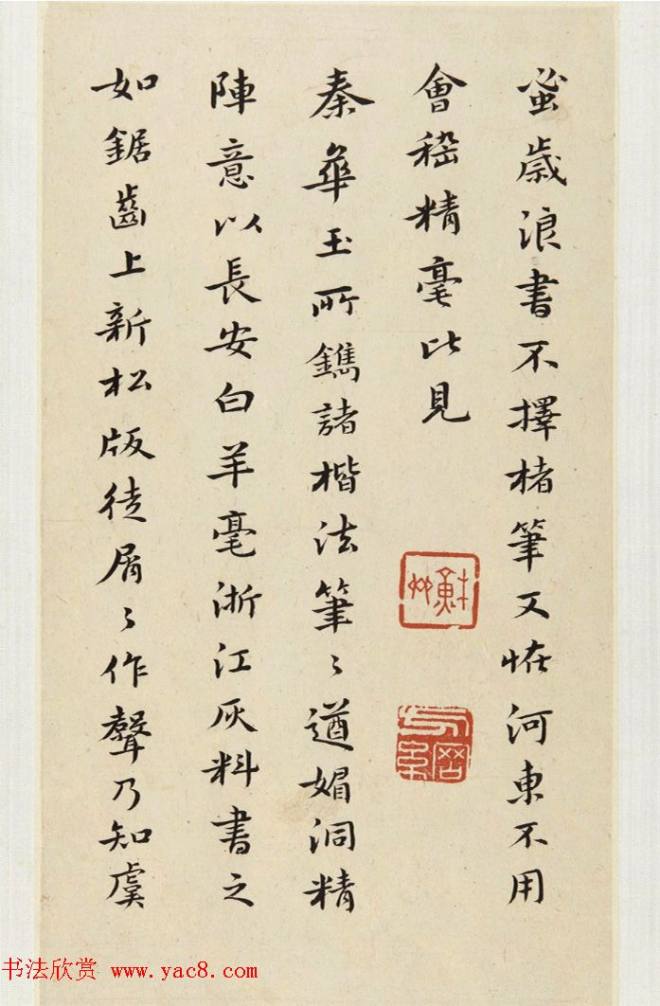 蚤歲浪書不擇楮筆又恠河東不用
會稽精毫此見
秦華玉所鐫諸楷法筆〻遒媚洞精
陣意以長安白羊毫浙江灰料書之
如鋸齒上新松版徒屑〻作聲乃知虞
書法欣赏 www.yac8.com